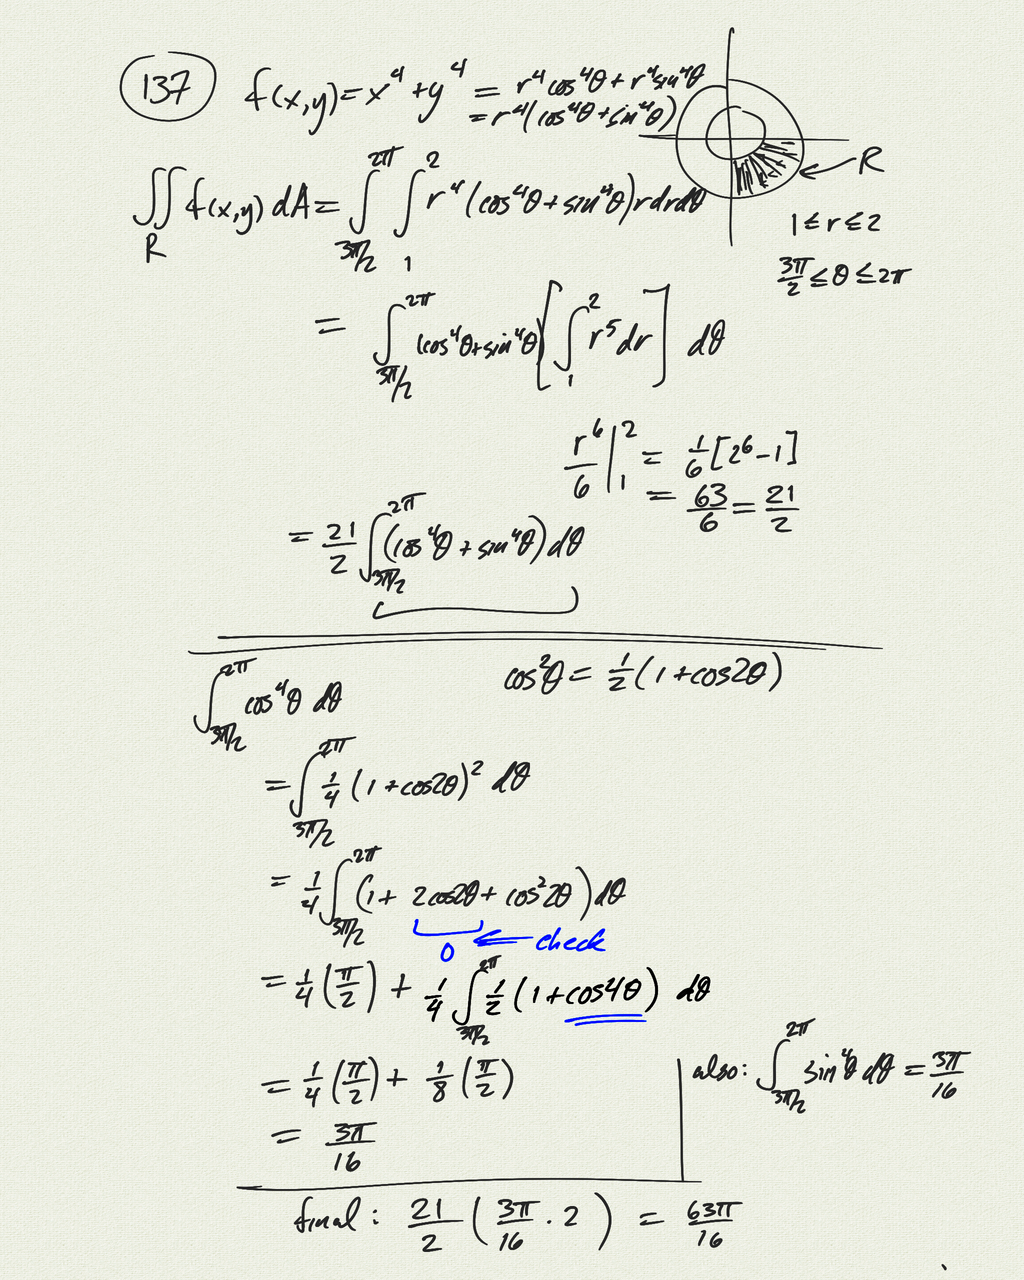 137 f(x,y) = x⁴ + y⁴ = r⁴cos⁴θ + r⁴sin⁴θ
= r⁴(cos⁴θ + sin⁴θ)
R
1 ≤ r ≤ 2
3π/2 ≤ θ ≤ 2π
∬_R f(x,y) dA = ∫_{3π/2}^{2π} ∫_1^2 r⁴(cos⁴θ + sin⁴θ) r dr dθ
= ∫_{3π/2}^{2π} (cos⁴θ + sin⁴θ) [∫_1^2 r⁵ dr] dθ
r⁶/6 |_1^2 = 1/6 [2⁶ - 1]
= 63/6 = 21/2
= 21/2 ∫_{3π/2}^{2π} (cos⁴θ + sin⁴θ) dθ
∫_{3π/2}^{2π} cos⁴θ dθ
cos²θ = 1/2 (1 + cos2θ)
= ∫_{3π/2}^{2π} 1/4 (1 + cos2θ)² dθ
= 1/4 ∫_{3π/2}^{2π} (1 + 2cos2θ + cos²2θ) dθ
0 ← check
= 1/4 (π/2) + 1/4 ∫_{3π/2}^{2π} 1/2 (1 + cos4θ) dθ
= 1/4 (π/2) + 1/8 (π/2)
= 3π/16
also: ∫_{3π/2}^{2π} sin⁴θ dθ = 3π/16
final: 21/2 (3π/16 · 2) = 63π/16